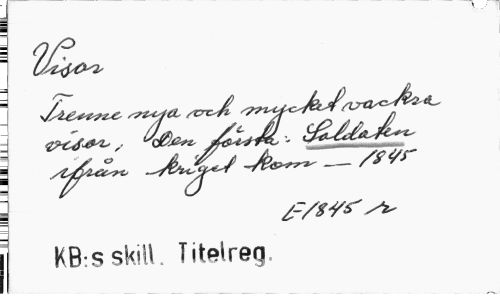 Visor
Trenne nya och mycket vackra
visor, Den första: Soldaten
ifrån kriget kom — 1845
E1845 r
KB:s skill. Titelreg.